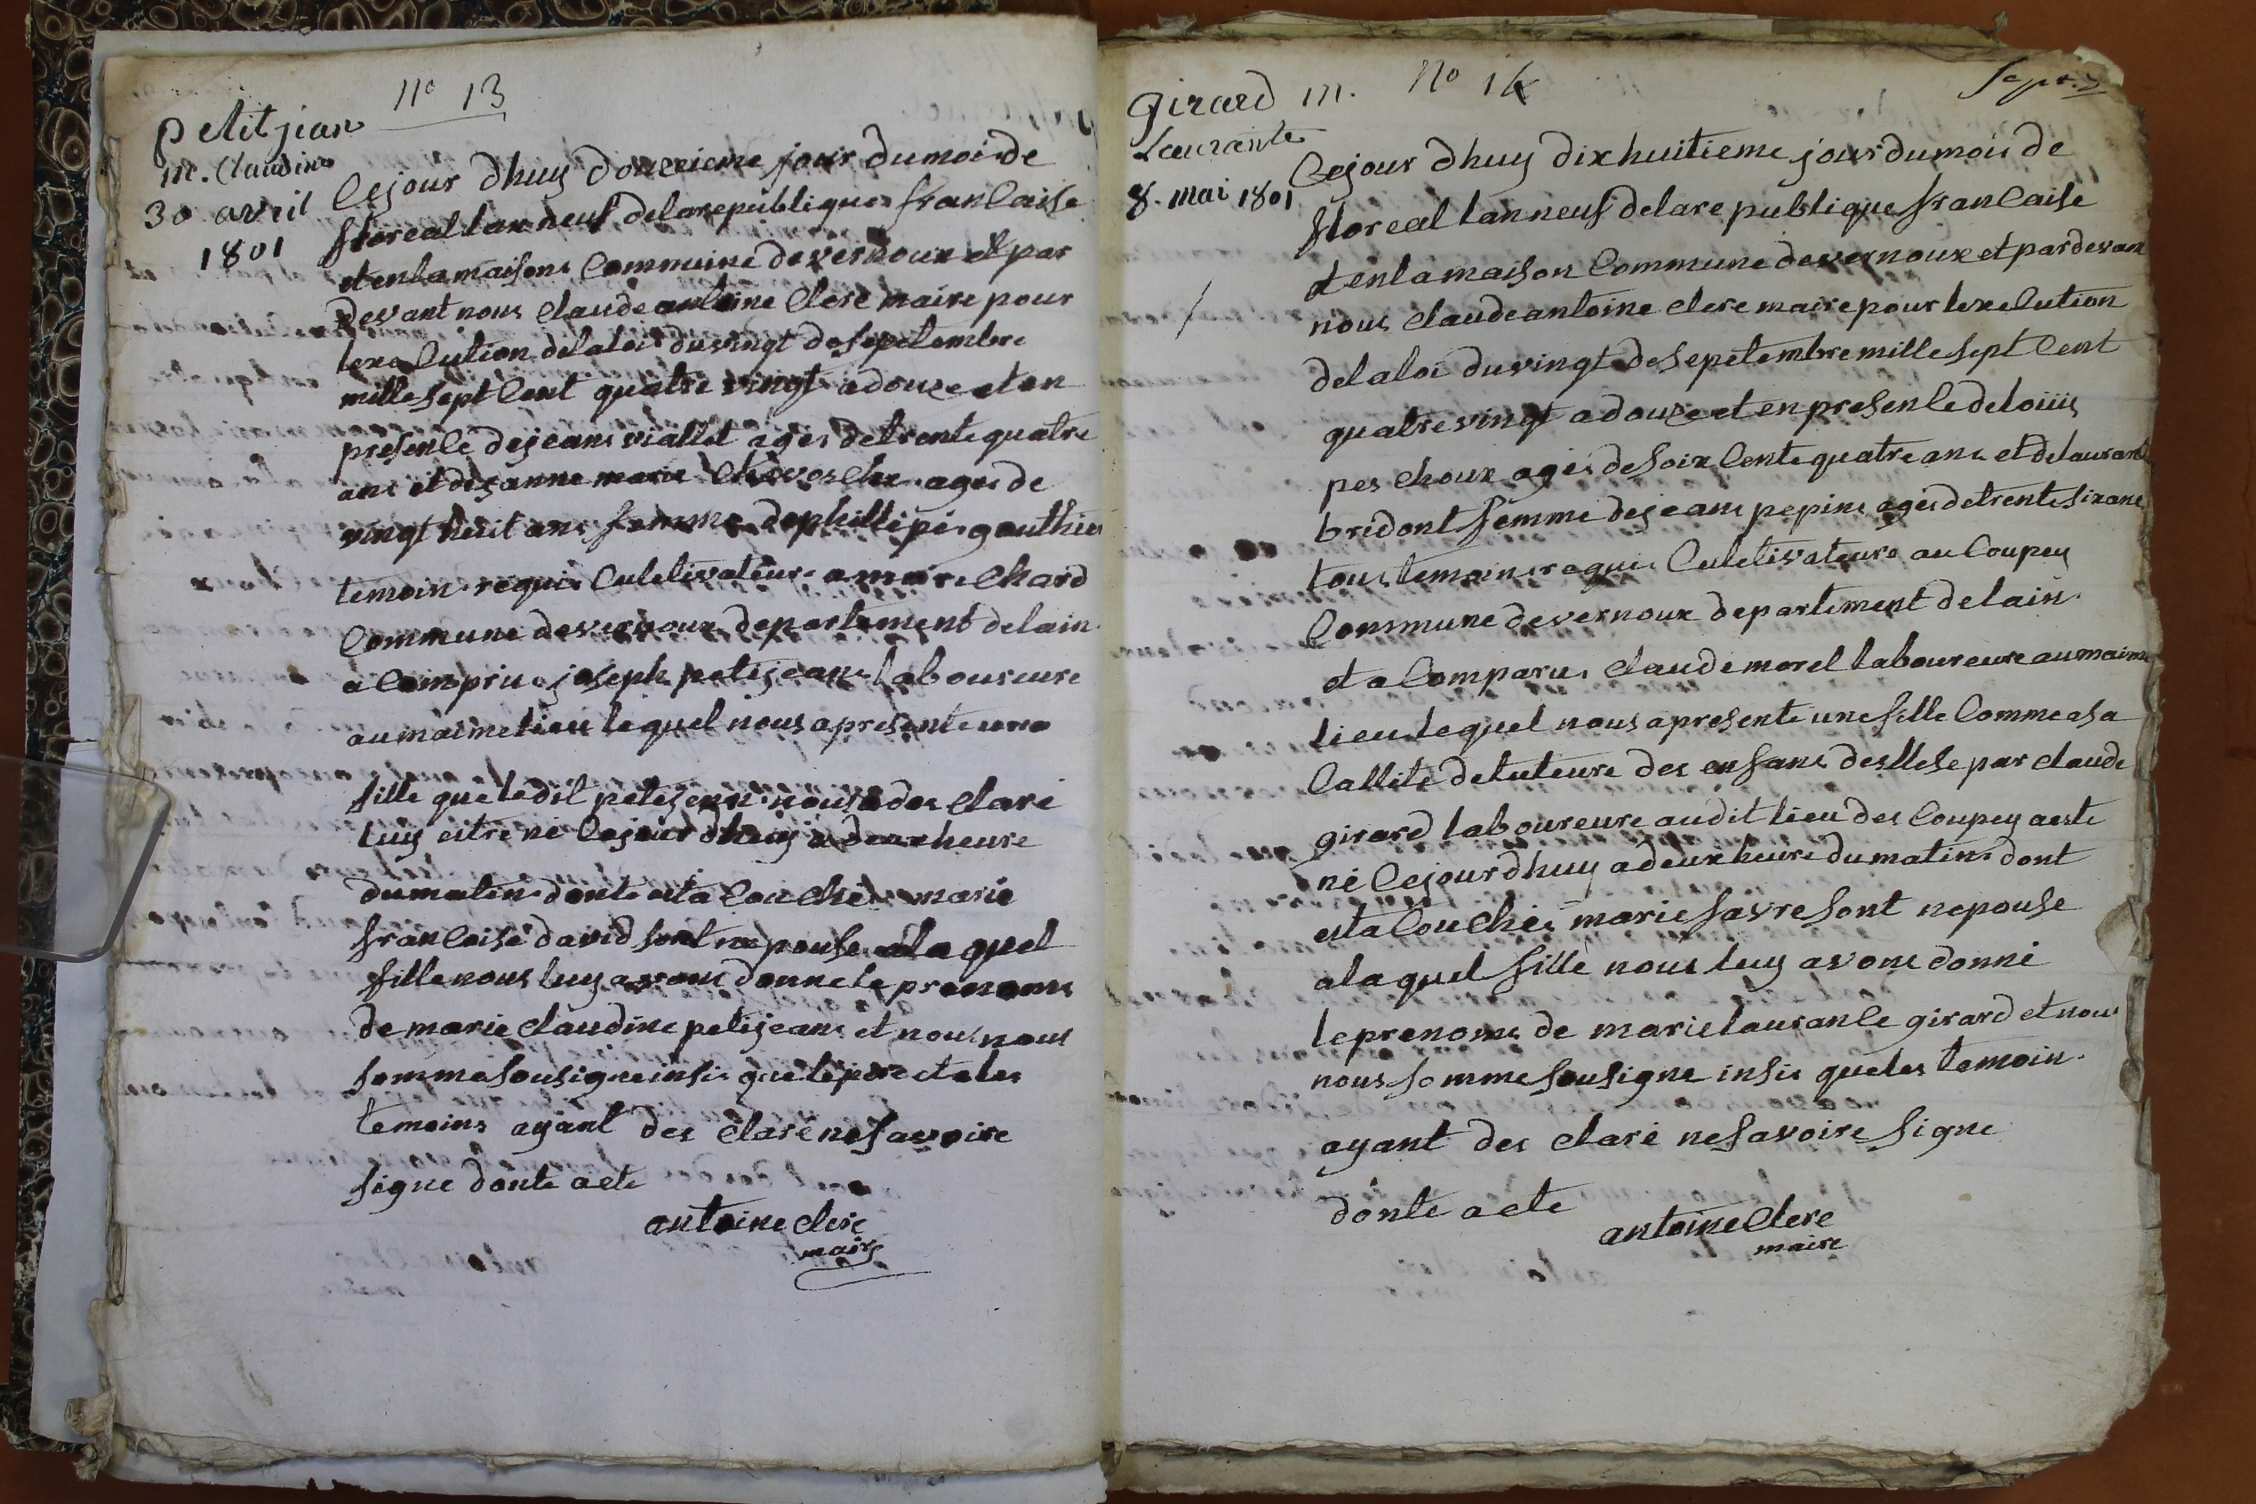 petit jean
m. Claudine
30 avril
1801
No 13
Cejour dhuy douzieme jour dumoi de
floreal lan neuf delarepublique franCaisse
etenlamaisons Commune devernoux et par
devant nous claude antoine clerc maire pour
lexeCution delaloi duvingt de sepetembre
mille sept Cent quatre vingt adouze et en
presenCe dejeans viallet ages detrente quatre
ans et des anne marie
ages de
vingt heuit ans femme dephillipes gauthier
temoin requis Culetivateurs a
Commune devernoux departement delain
a Compru joseph petisjeans laboureure
aumaimelieu lequel nous apresente une
fille queledit petisjean nous a des claré
luy estre né Cejour dhuy a deux heure
dumatin donte esta Couchée marie
franCoise david sont nepouse alaquel
fille nous luy avons donne le prenoms
de marie claudine petisjeans et nous nous
somme sousigne insis que le pere et eles
temoins ayant des claré nesavoire
signe donte acte
antoine clerc
maire
girard m.
Laurante
8. mai 1801
No 14
Sept.
Cejour dhuy dixhuitieme jour dumois de
floreal lanneuf delarepublique franCaise
etenlamaison Commune devernoux et pardevant
nous claude antoine clerc maire pour lexeCution
delaloi duvingt de sepetembre mille sept Cent
quatre vingt adouze et en presenCe delouis
pes choux ages desoixCente quatre ans et delaurant
bridont femme dejeans pepins ages detrente six ans
tous temoins requis Culetivateurs au Coupey
Commune devernoux departement delain
et a Comparus claude morel laboureure aumaime
lieu lequel nous apresente une fille Comme asa
Callité detuteure des enfans deslese par claude
girard laboureure audit lieu des Coupey aeste
né Cejourdhuy adeux heure dumatins dont
esta Couchée marie favre sont nepouse
alaquel fille nous luy avons donné
leprenoms de marie lauranCe girard et nous
nous somme sousigne insis queles temoin
ayant des claré nesavoire signe
donte acte
antoine Clerc
maire